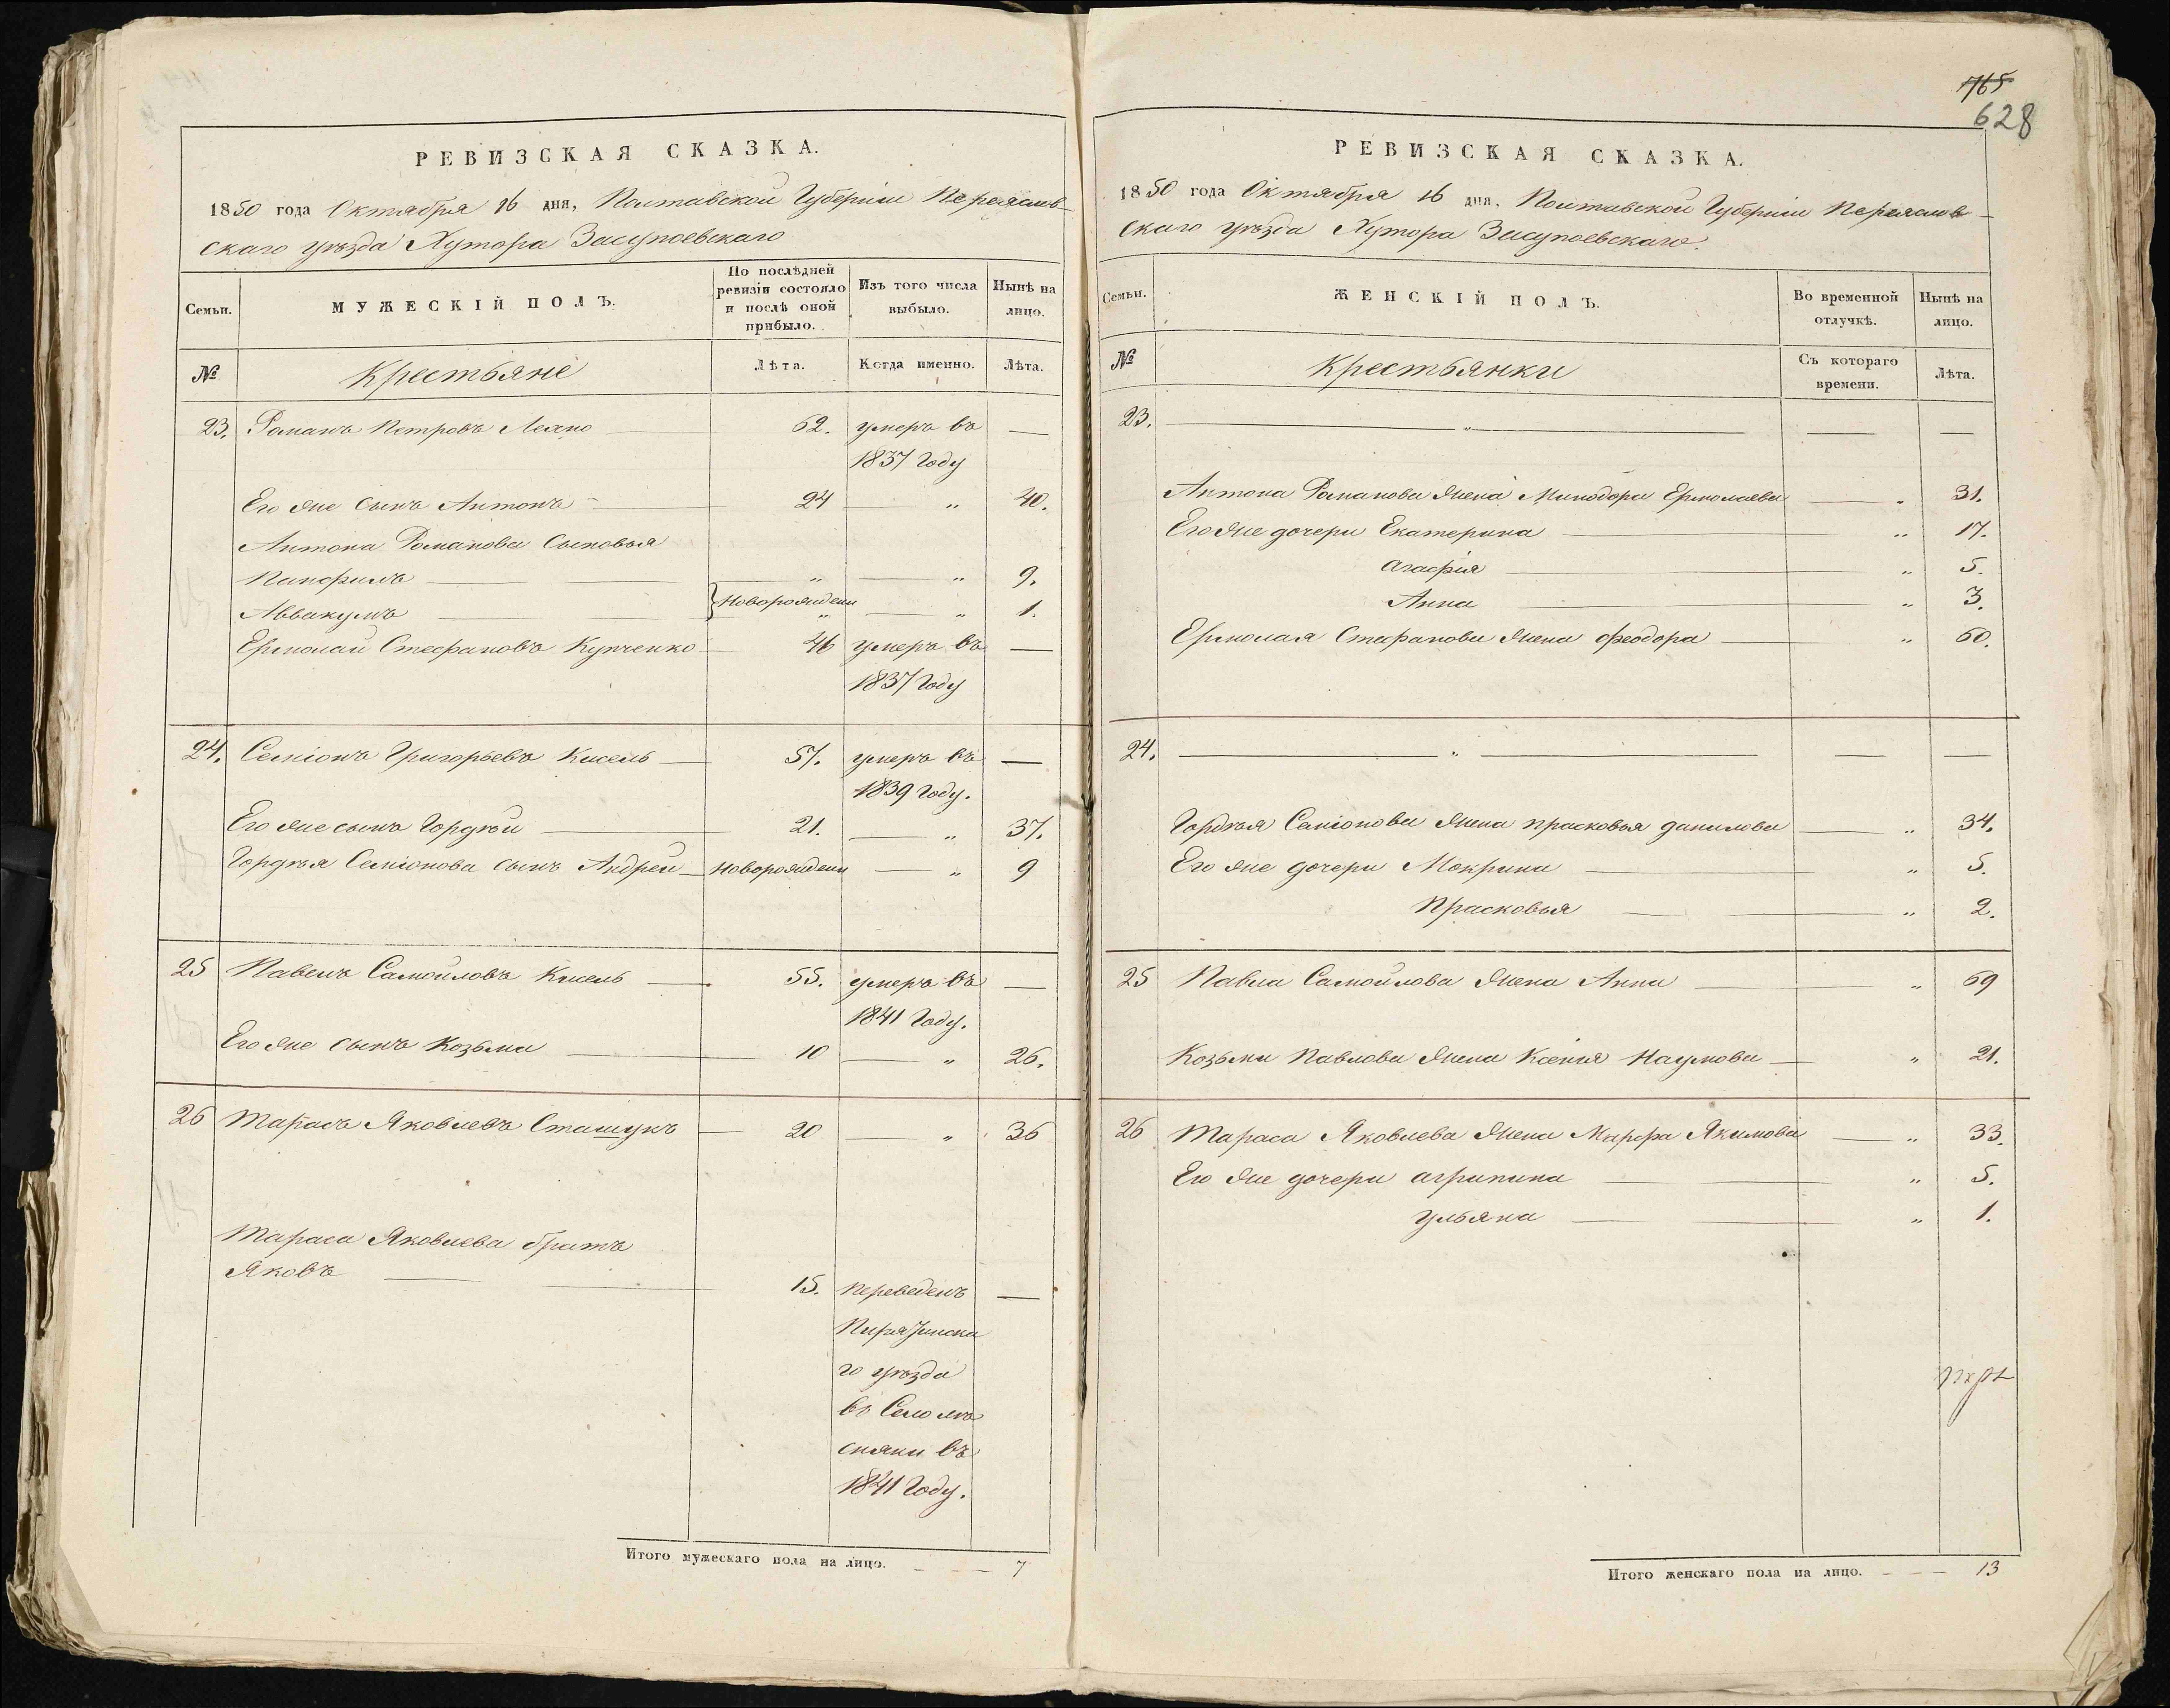 РЕВИЗСКАЯ СКАЗКА.
1850 года Октября 16 дня, Полтавской Губерніи Переяслов-
скаго уѣзда Хутора Засупоевскаго
Семьи. МУЖЕСКІЙ ПОЛЪ. По послѣдней ревизіи состояло и послѣ оной прибыло. Изъ того числа выбыло. Нынѣ на лицо.
№ Крестьяне Лѣта. Когда именно. Лѣта.
23. Романъ Петровъ Лехно 62. умеръ въ —
1837 году
Его же сынъ Антонъ 24 — „ 40.
Антона Романова сыновья
Панфилъ „ — „ 9.
Новорождены
Аввакумъ „ — „ 1.
Ермолай Стефановъ Купченко 46 умеръ въ —
1837 году
24. Семіонъ Григорьевъ Кисель 57. умеръ въ —
1839 году.
Его же сынъ Гордѣй 21. — „ 37.
Гордѣя Семіонова сынъ Андрей новорожденн — „ 9
25 Павелъ Самойловъ Кисель 55. умеръ въ —
1841 году.
Его же сынъ Козьма 10 — „ 26.
26 Тарасъ Яковлевъ Сташукъ 20 — „ 36
Тараса Яковлева братъ
Яковъ 15. переведенъ —
Пирятинска
го уѣзда
въ Село
въ
1841 году.
Итого мужескаго пола на лицо. — — — 7
765
628
РЕВИЗСКАЯ СКАЗКА.
1850 года Октября 16 дня, Полтавской Губерніи Переяслов-
скаго уѣзда Хутора Засупоевскаго.
Семьи. ЖЕНСКІЙ ПОЛЪ. Во временной отлучкѣ. Нынѣ на лицо.
№ Крестьянки Съ котораго времени. Лѣта.
23. — „ — — —
Антона Романова жена Минодора Ермолаева — „ 31.
Его же дочери Екатерина — „ 17.
Агафія — „ 5.
Анна — „ 3.
Ермолая Стефанова жена Феодора — „ 60.
24. — „ — — —
Гордѣя Семіонова жена Прасковья Данилова — „ 34.
Его же дочери Мокрина — „ 5.
Прасковья — „ 2.
25 Павла Самойлова жена Анна — „ 69
Козьмы Павлова жена Ксенія Наумова — „ 21.
26 Тараса Яковлева жена Марфа Якимова — „ 33.
Его же дочери Агрипина — „ 5.
Ульяна — „ 1.
Итого женскаго пола на лицо. — — — 13